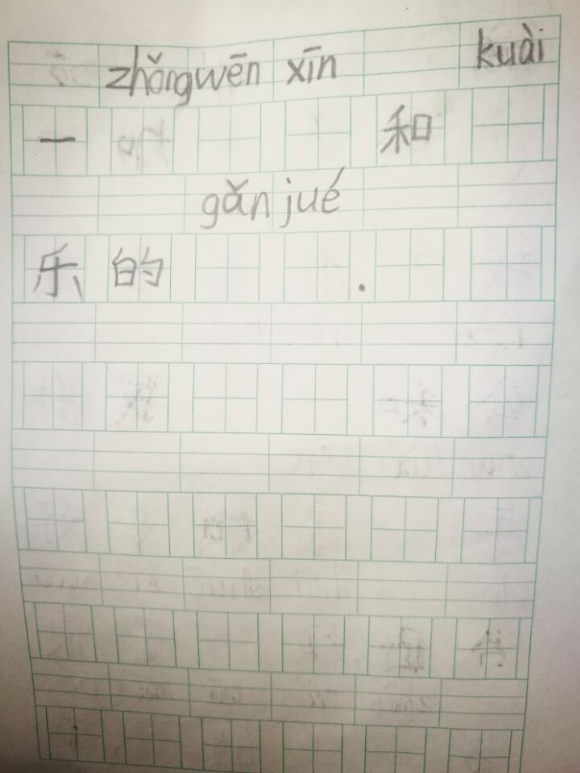 zhǒngwēn xīn kuài
一 和
gǎn jué
乐的 .